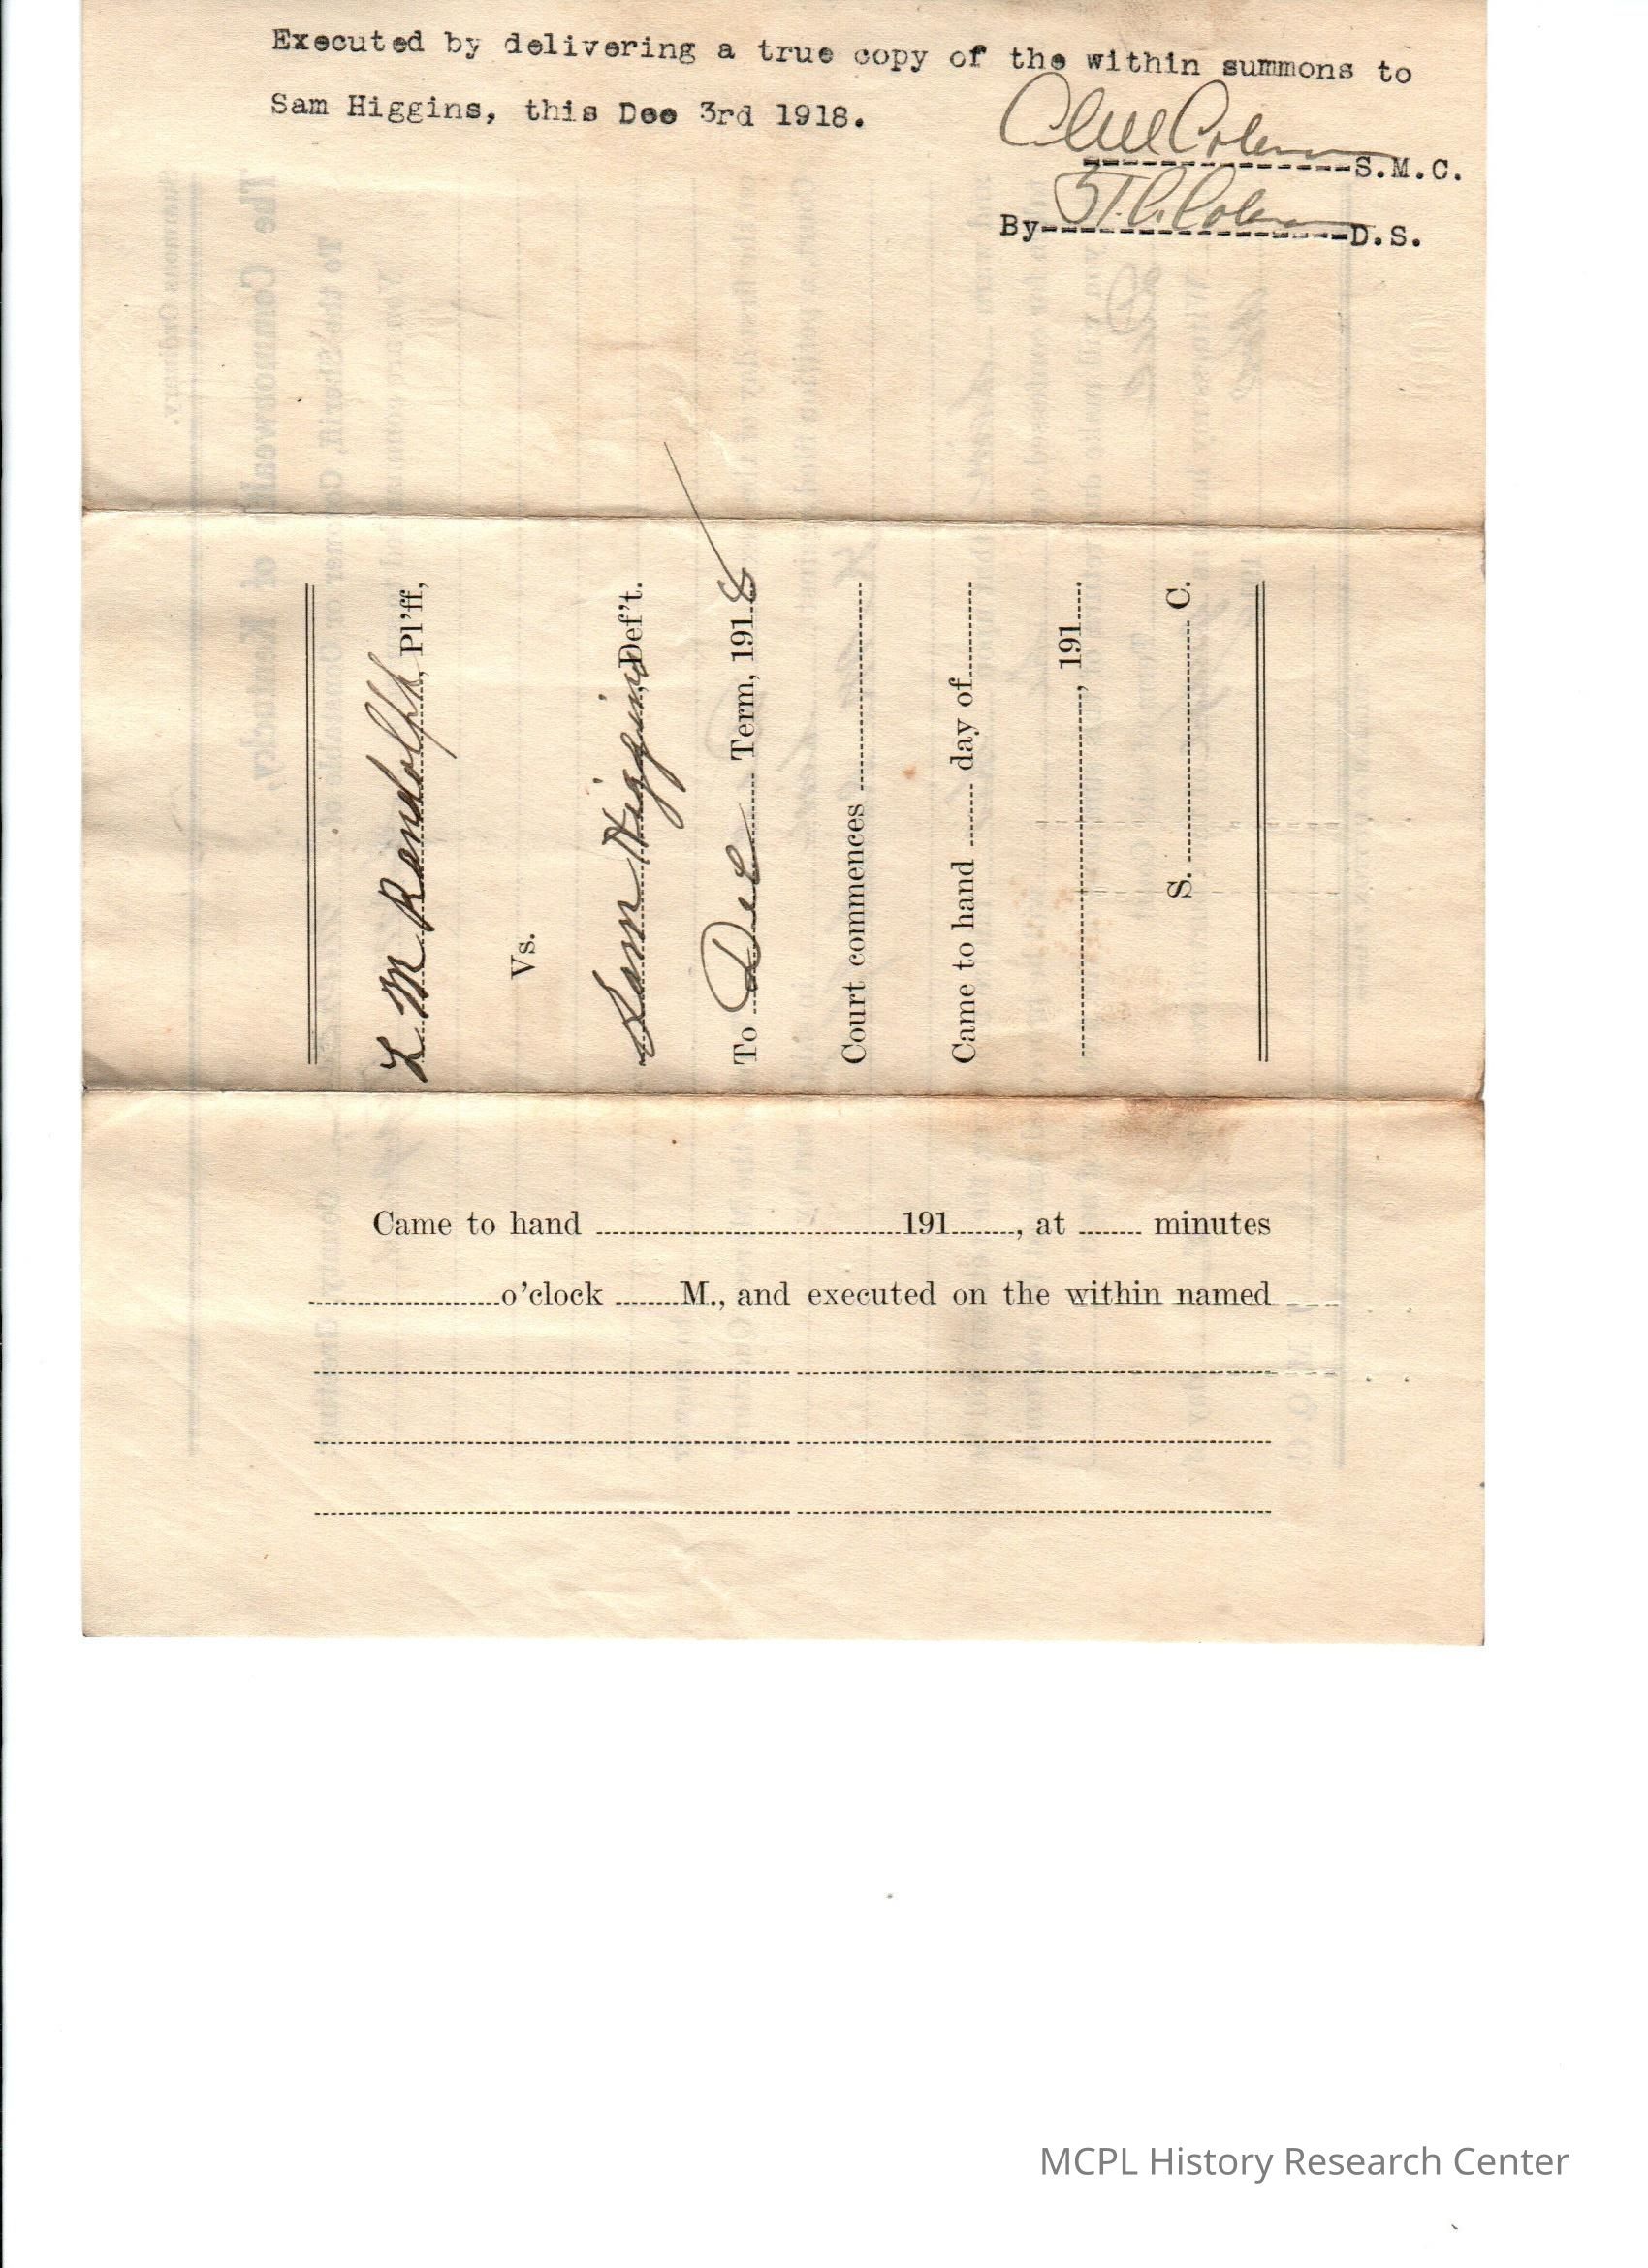 Executed by delivering a true copy of the within summons to
Sam Higgins, this Dec 3rd 1918.
Coleman S.M.C.
By Coleman D.S.
L. M. Randolph, Pl'ff,
Vs.
Sam Higgins Def't.
To Dec Term, 1918
Court commences
Came to hand day of
, 191
S. C.
Came to hand 191 , at minutes
o'clock M., and executed on the within named
MCPL History Research Center